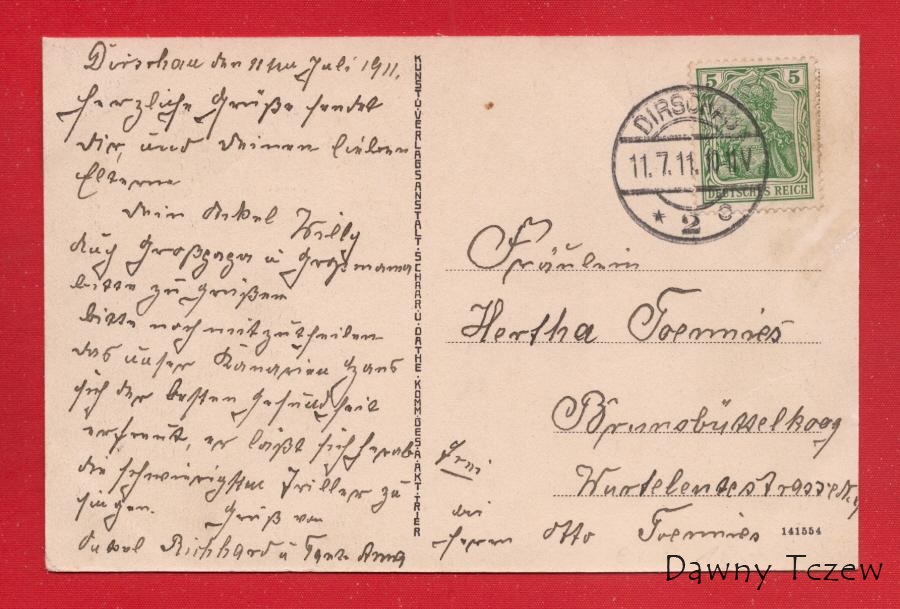 Dirschau den 11ten Juli 1911.
Herzliche Grüße sendet
dir, und deinen lieben
Eltern
Dein Onkel Willy
Auch Großpapa u Großmama
bitte zu Grüßen
bitte noch mitzutheilen
das unser Kanarien Hans
sich der besten Gesundheit
erfreut, er läßt sich herab
die schwierigsten Triller zu
singen. Gruß von
Onkel Richhard u Tante Anna
KUNST- U. VERLAGSANSTALT SCHAAR U. DATHE KOMM. GES. A. AKT. TRIER
5 5
DEUTSCHES REICH
DIRSCHAU
11.7.11. 10-11V
* 2 c
Fräulein
Hertha Toennies
Brunsbüttelkoog
Frei
bei
Herrn Otto Toennies
141554
Dawny Tczew